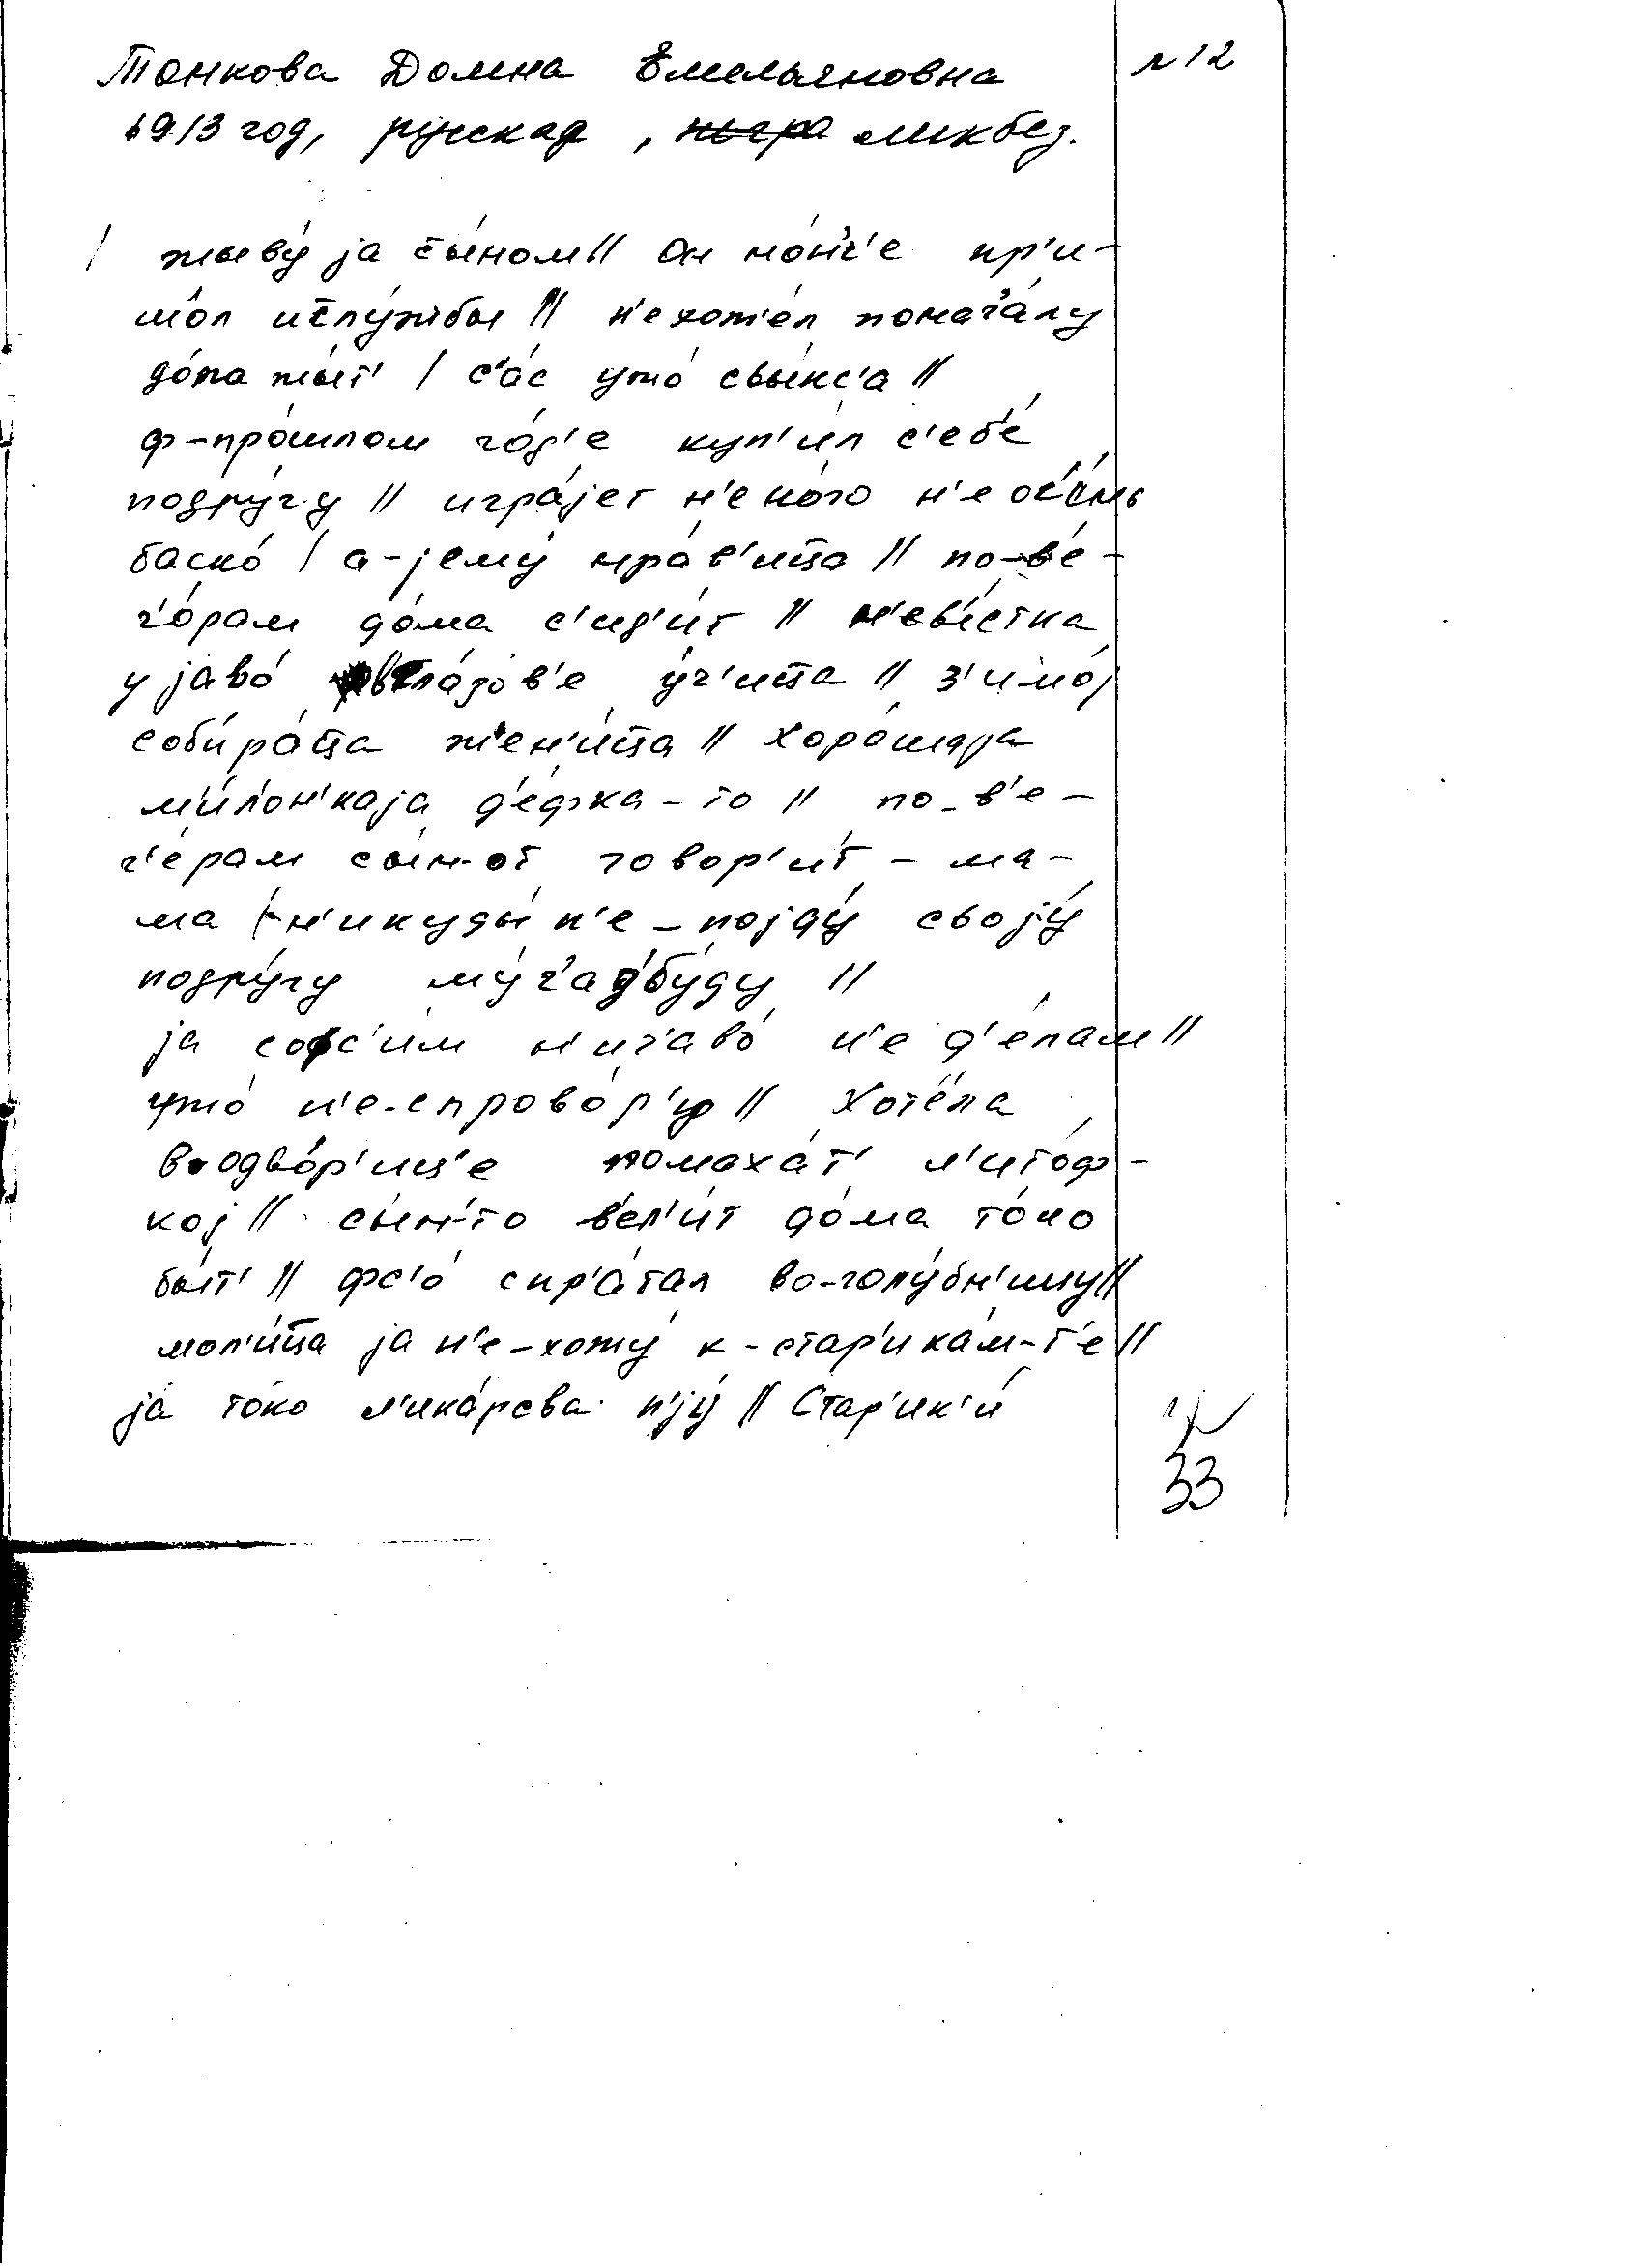 Тонкова Домна Емельяновна №12
1913 год, русская, ликбез.
/ жыву́ jа сы́ном // Он но́н'ч'е пр'и-
шо́л ислу́жбы // н'е хот'е́л понач'а́лу
до́ма жы́т' / с'а́с ужо́ свы́кс'а //
ф-про́шлом го́д'е куп'и́л с'еб'е́
подру́гу // игра́jет н'ено́го н'е о́ч'ень
баско́ / а-jему́ нра́в'ица // по-ве-
ч'о́рам до́ма с'ид'и́т // н'ев'е́стка
у jаво́ вгла́зов'е у́ч'ица // з'имо́j
собира́ца жен'и́ца // хоро́шаjа
м'и́лон'каjа д'е́фка-то // по-в'е-
ч'е́рам сы́н-от говор'и́т - ма-
ма / н'икуды́ н'е-поjду́ своjу́
подру́гу му́ч'ад'бу́ду //
jа софс'и́м н'ич'аво́ н'е д'е́лам //
ужо́ н'е-спрово́р'у // Хоте́ла
в-одво́р'ищ'е помаха́т' л'ито́ф-
коj // сы́н-то вел'и́т до́ма то́ко
бы́т' // фс'о́ спр'а́тал во-голу́бн'ицу //
мол'и́ца jа н'е-хожу́ к-стар'ика́м-т'е //
jа то́ко л'ика́рсва п'jу́ // Стар'ик'и́
33